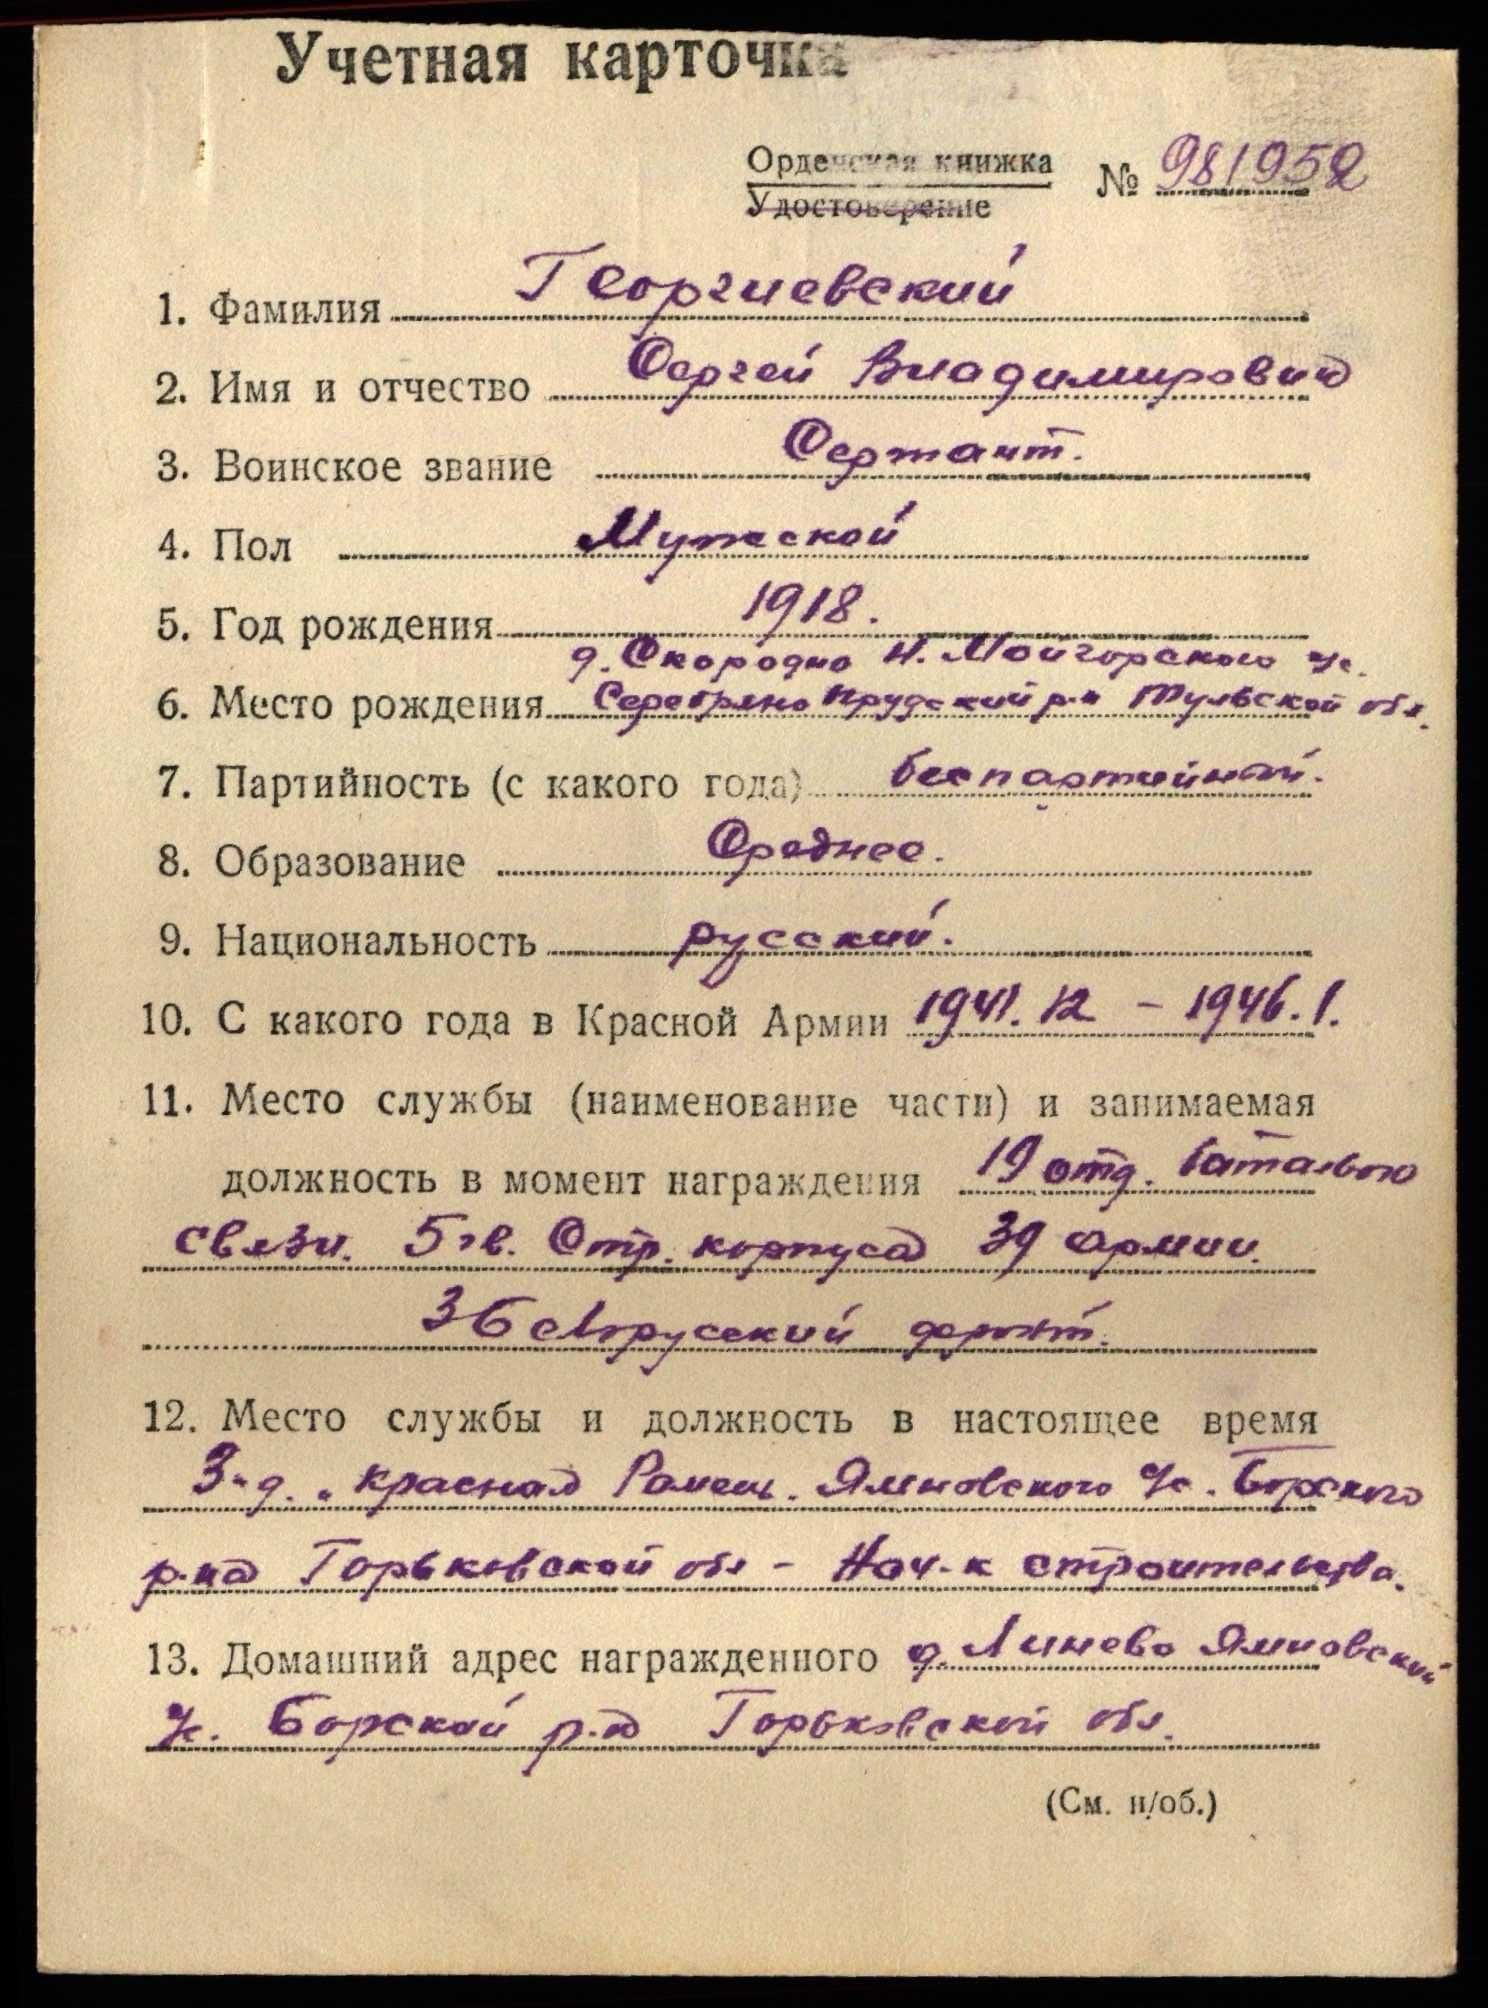 Учетная карточка
Орденская книжка
Удостоверение
№ 981952
1. Фамилия Георгиевский
2. Имя и отчество Сергей Владимирович
3. Воинское звание Сержант.
4. Пол Мужской
5. Год рождения 1918.
д. Скородно Н.
6. Место рождения Серебряно Прудский р-н Тульской обл.
7. Партийность (с какого года) беспартийный.
8. Образование Среднее.
9. Национальность русский.
10. С какого года в Красной Армии 1941.12 – 1946.1.
11. Место службы (наименование части) и занимаемая
должность в момент награждения 19 отд. батальон
связи. 5 гв. Стр. корпуса 39 армии.
3 Белорусский фронт.
12. Место службы и должность в настоящее время
З-д. „Красная Рамень. Ямновского с/с. Борского
р-на Горьковской обл – Нач-к строительства.
13. Домашний адрес награжденного д. Линево Ямновский
с/с. Борской р-а Горьковской обл.
(См. н/об.)